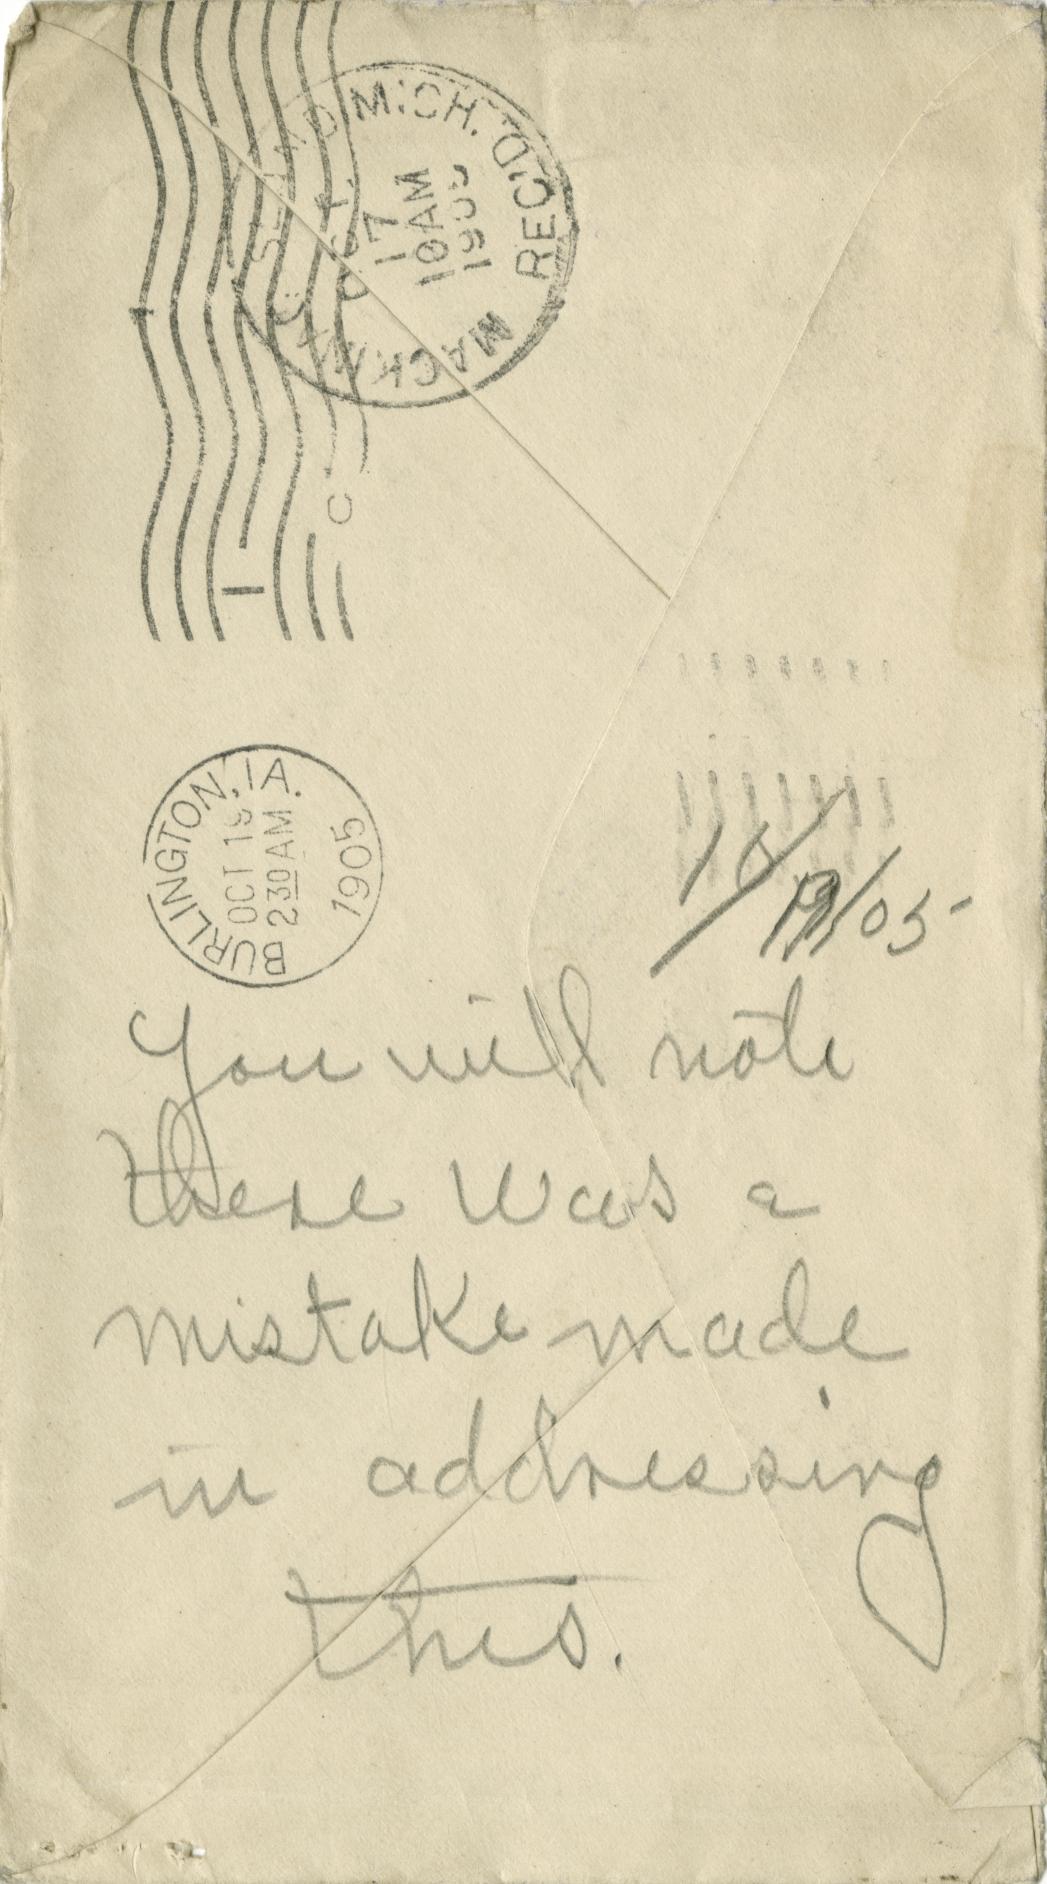 MACKINAC ISLAND MICH. REC'D
OCT.
17
10AM
1905
C
1
BURLINGTON, IA.
OCT 19
2 30 AM
1905
10/19/05
You will note
there was a
mistake made
in addressing
this.